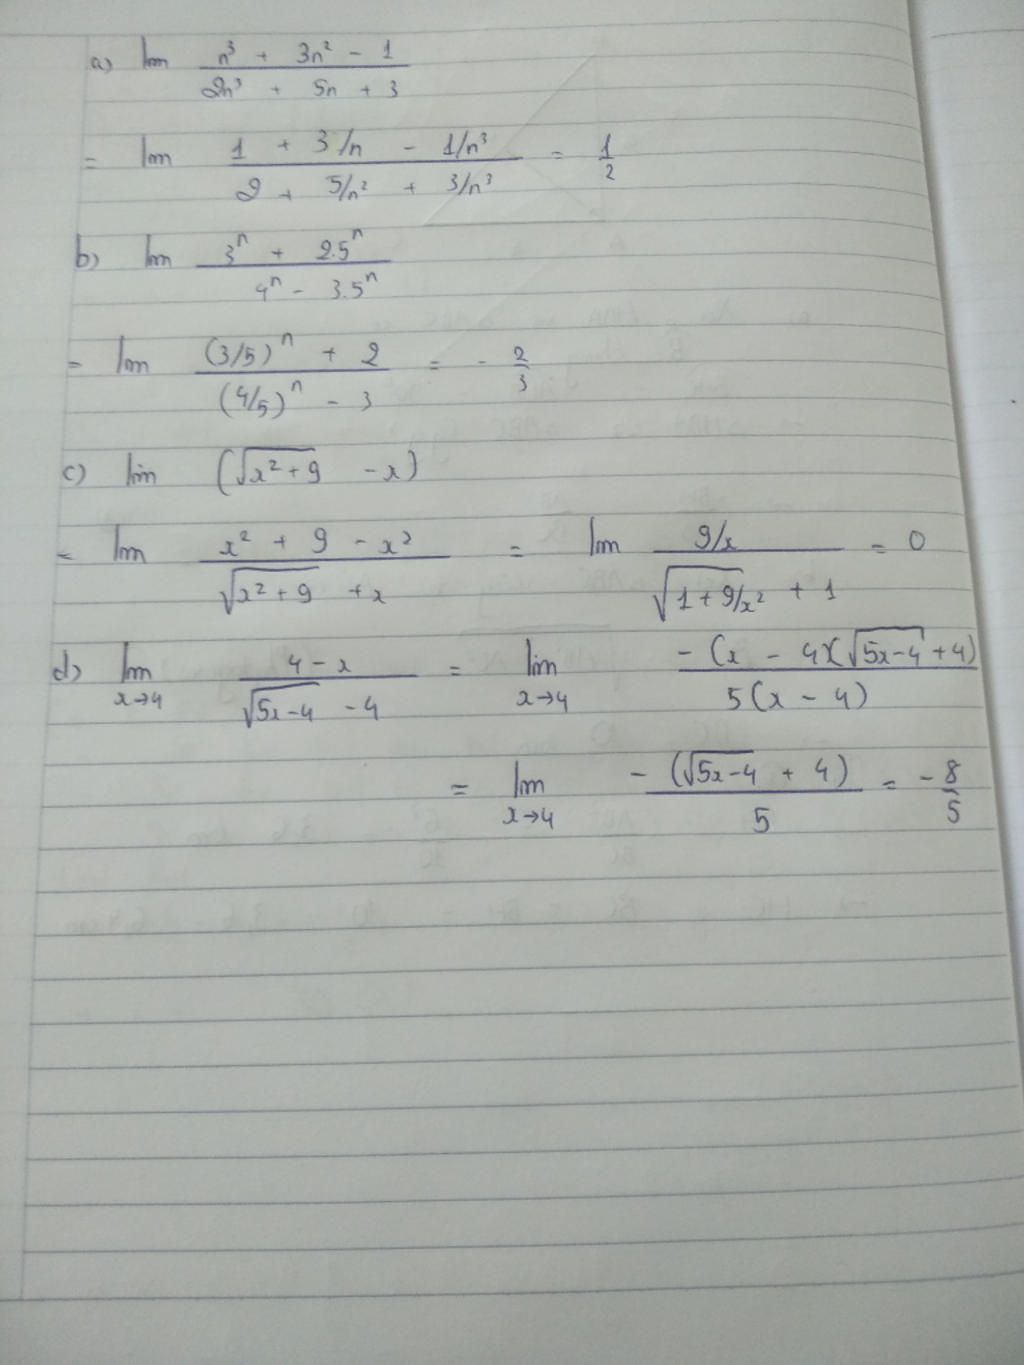 a) lim (n³ + 3n² - 1) / (2n³ + 5n + 3)
= lim (1 + 3/n - 1/n³) / (2 + 5/n² + 3/n³) = 1/2
b) lim (3ⁿ + 2.5ⁿ) / (4ⁿ - 3.5ⁿ)
= lim ((3/5)ⁿ + 2) / ((4/5)ⁿ - 3) = - 2/3
c) lim (√(x² + 9) - x)
= lim (x² + 9 - x²) / (√(x² + 9) + x) = lim (9/x) / (√(1 + 9/x²) + 1) = 0
d) lim x→4 (4 - x) / (√(5x-4) - 4) = lim x→4 -(x - 4)(√(5x-4) + 4) / 5(x - 4)
= lim x→4 -(√(5x-4) + 4) / 5 = - 8/5